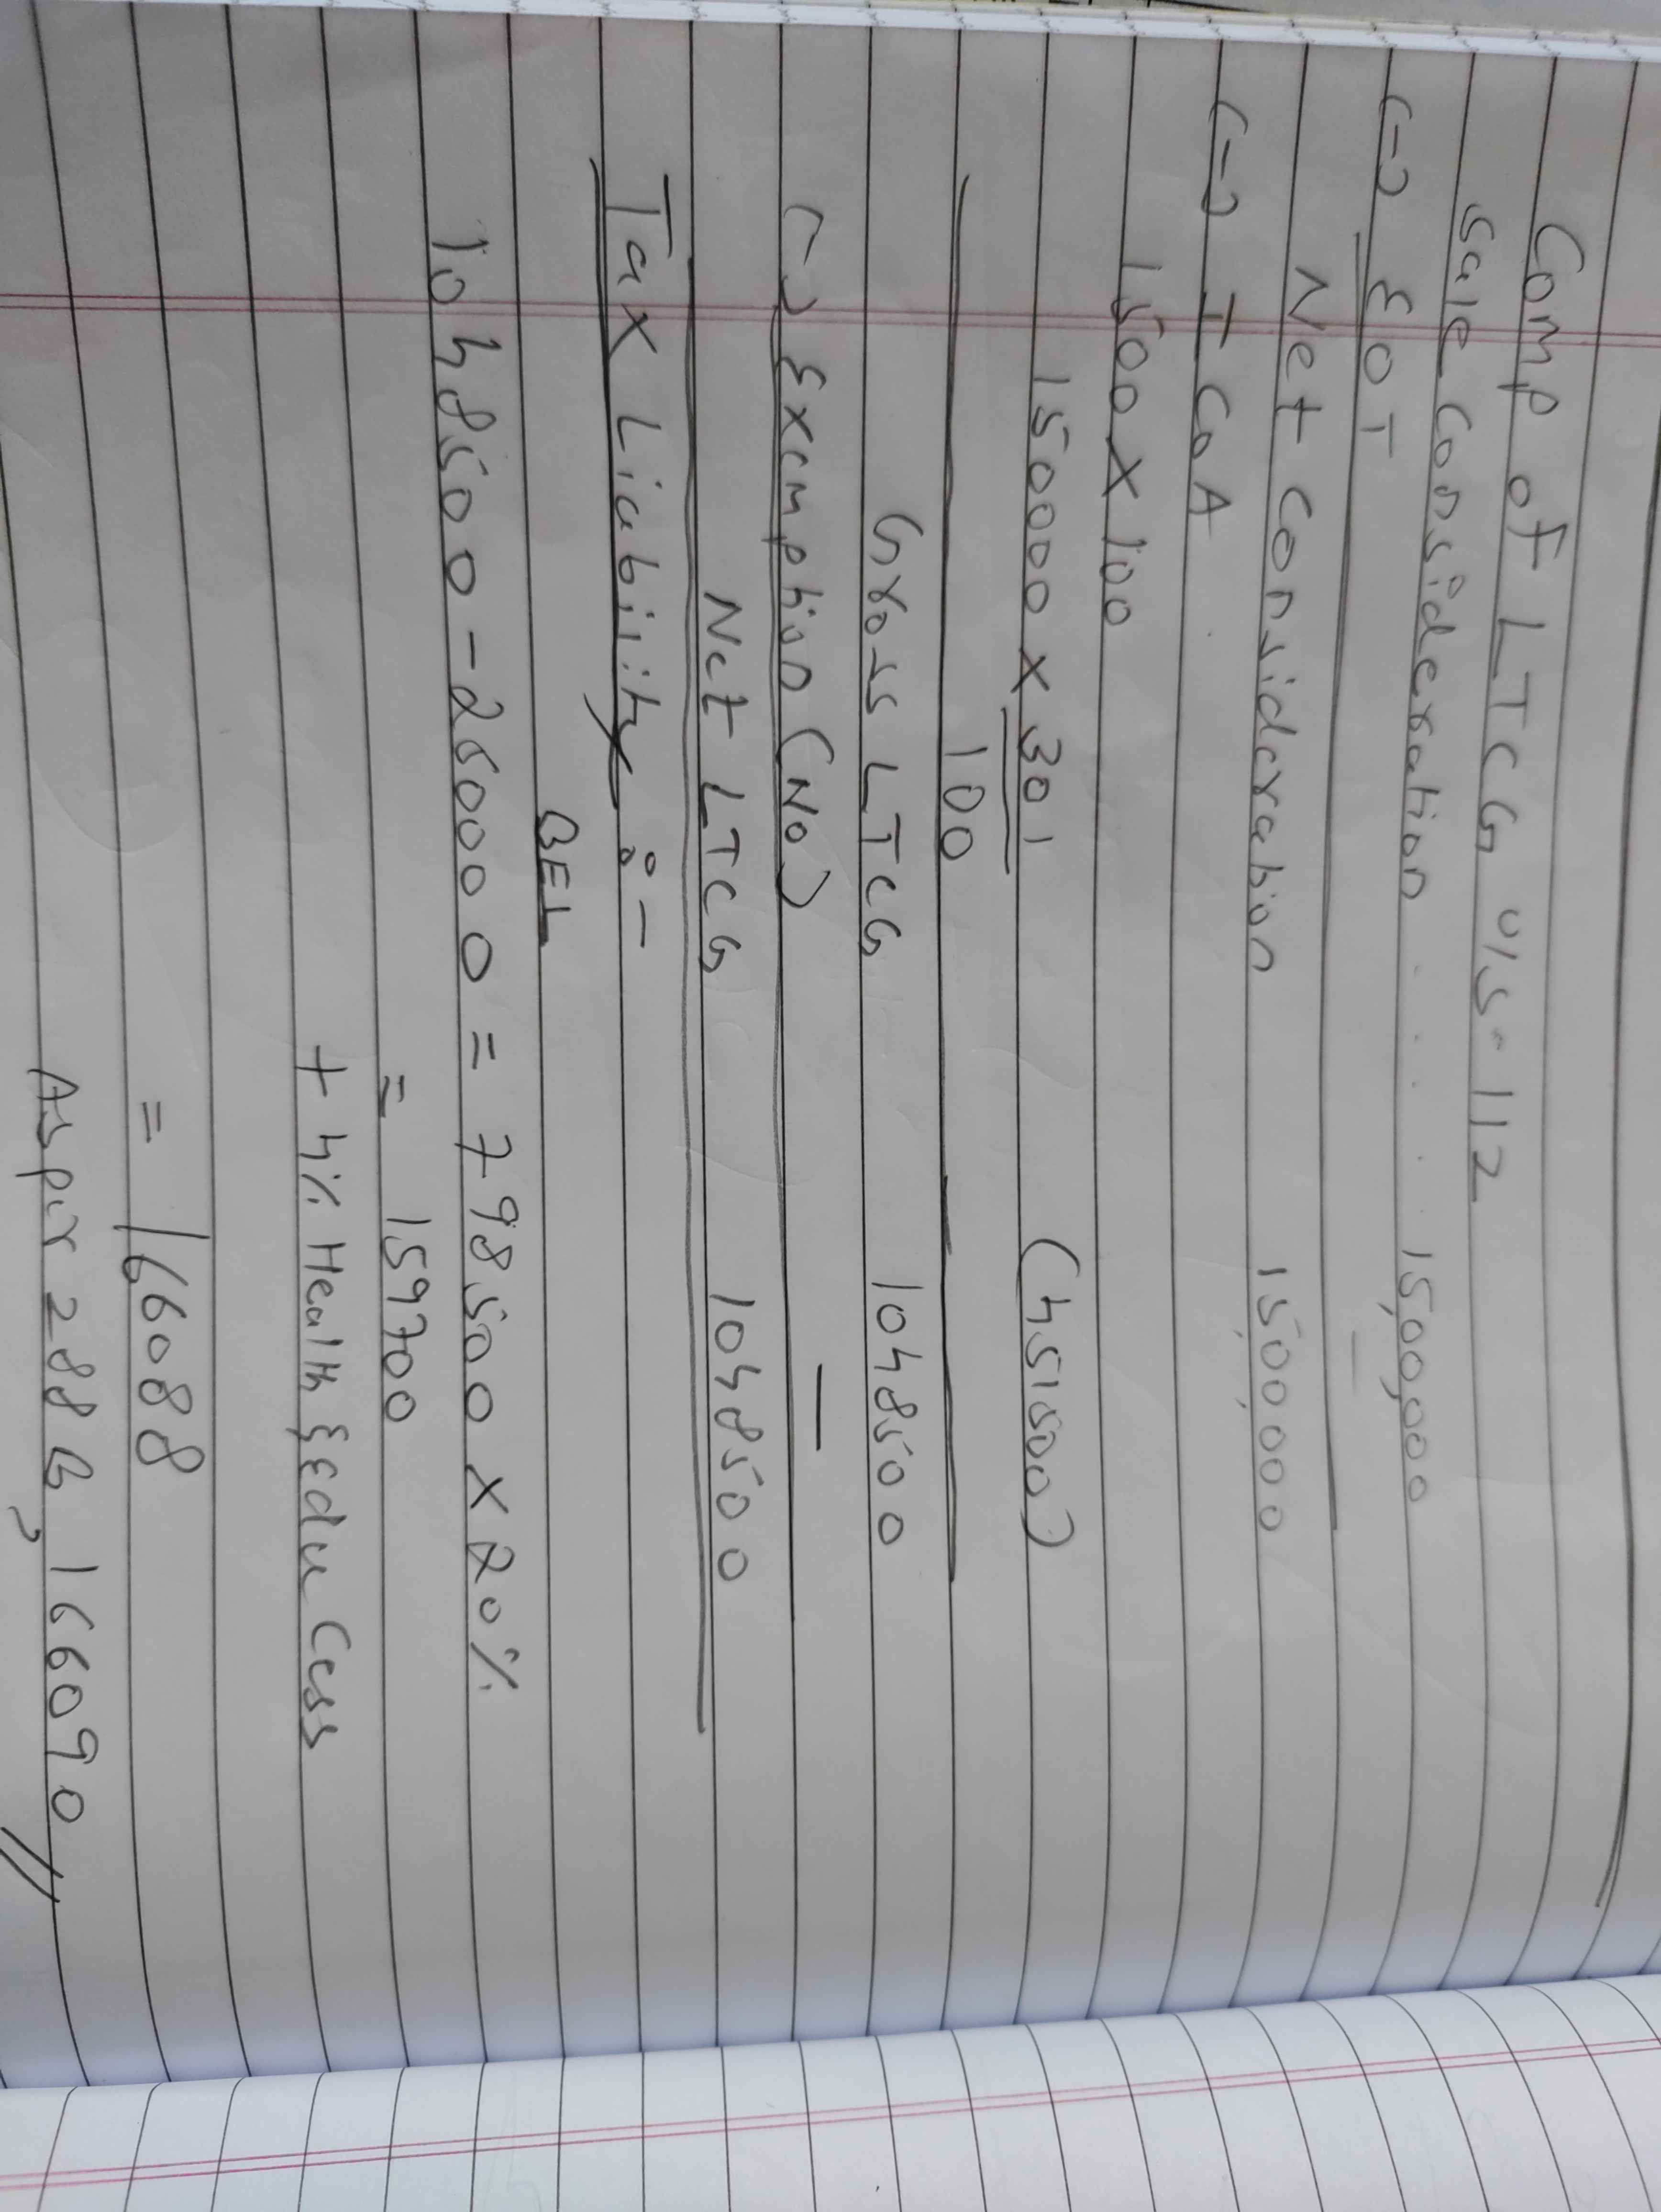 Comp of LTCG U/S-112
Sale Consideration.... 15,00,000
(-) EOT —
Net Consideration 15,00,000
(-) ICOA
1500 X 100
150000 X 301 (451500)
100
Gross LTCG 1048500
(-) Exemption (NO) —
Net LTCG 1048500
Tax Liability :-
BEL
1048500 - 250000 = 798500 X 20%
= 159700
+ 4% Health & Edu Cess
= 166088
As per 288B, 166090 //